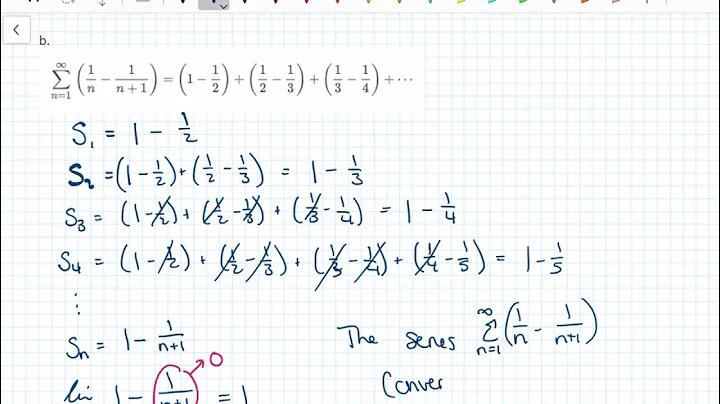 b.
∞∑n=1 (1/n − 1/(n+1)) = (1 − 1/2) + (1/2 − 1/3) + (1/3 − 1/4) + ⋯
S₁ = 1 − 1/2
S₂ = (1 − 1/2) + (1/2 − 1/3) = 1 − 1/3
S₃ = (1 − 1/2) + (1/2 − 1/3) + (1/3 − 1/4) = 1 − 1/4
S₄ = (1 − 1/2) + (1/2 − 1/3) + (1/3 − 1/4) + (1/4 − 1/5) = 1 − 1/5
⋮
Sn = 1 − 1/(n+1)
The series ∞∑n=1 (1/n − 1/(n+1))
lim 1 − 1/(n+1) = 1
0
Conver